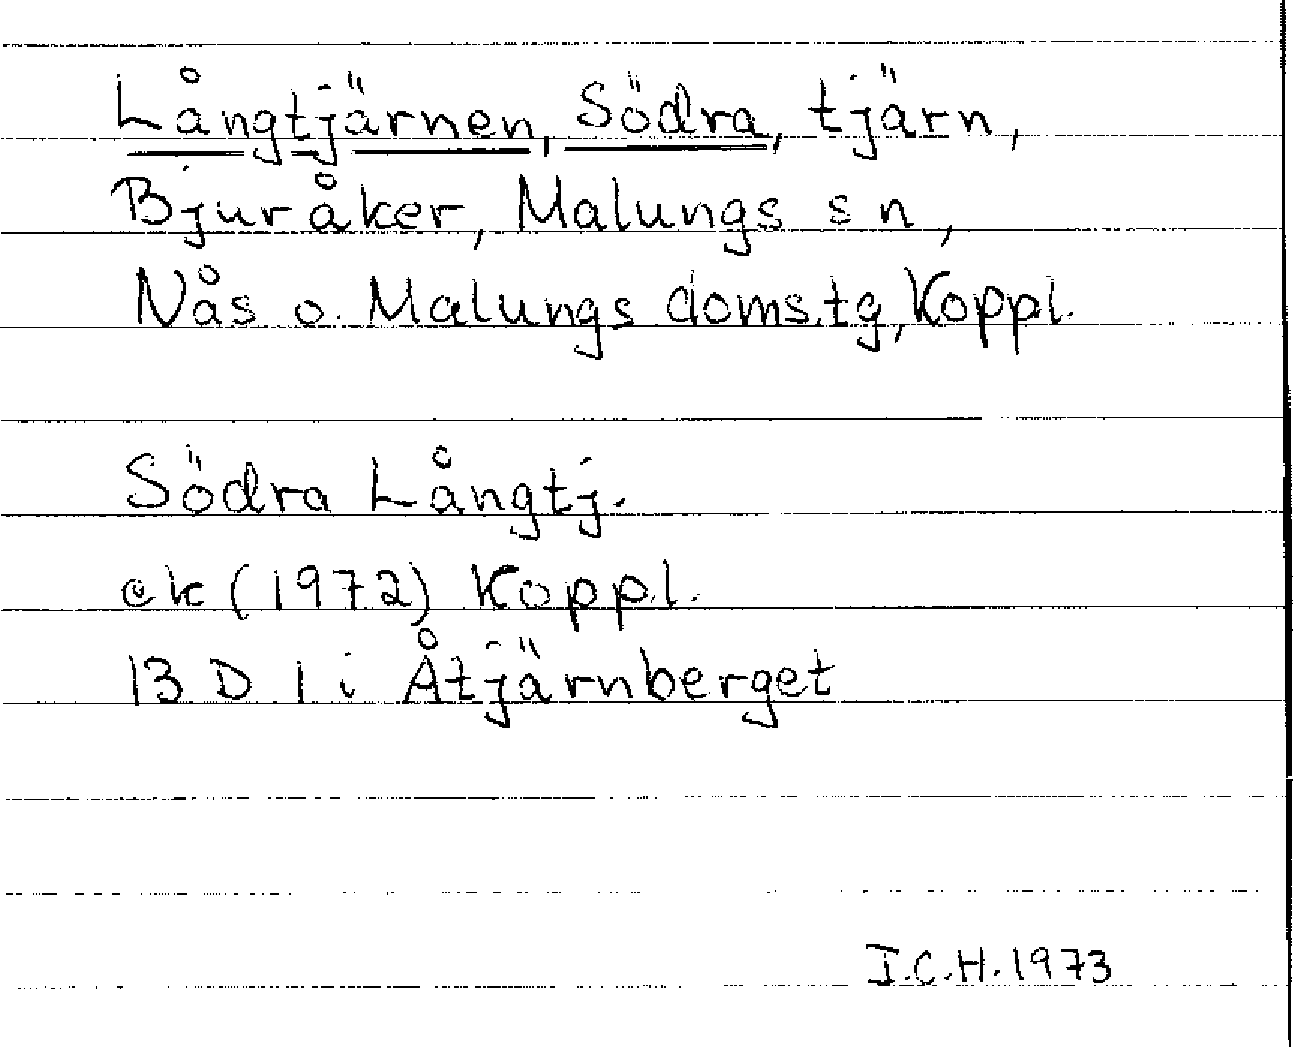 Långtjärnen, Södra, tjärn,
Bjuråker, Malungs sn,
Nås o. Malungs doms.tg, Koppl.
Södra Långtj.
ek (1972) Koppl.
13 D 1 i Åtjärnberget
I.C.H. 1973